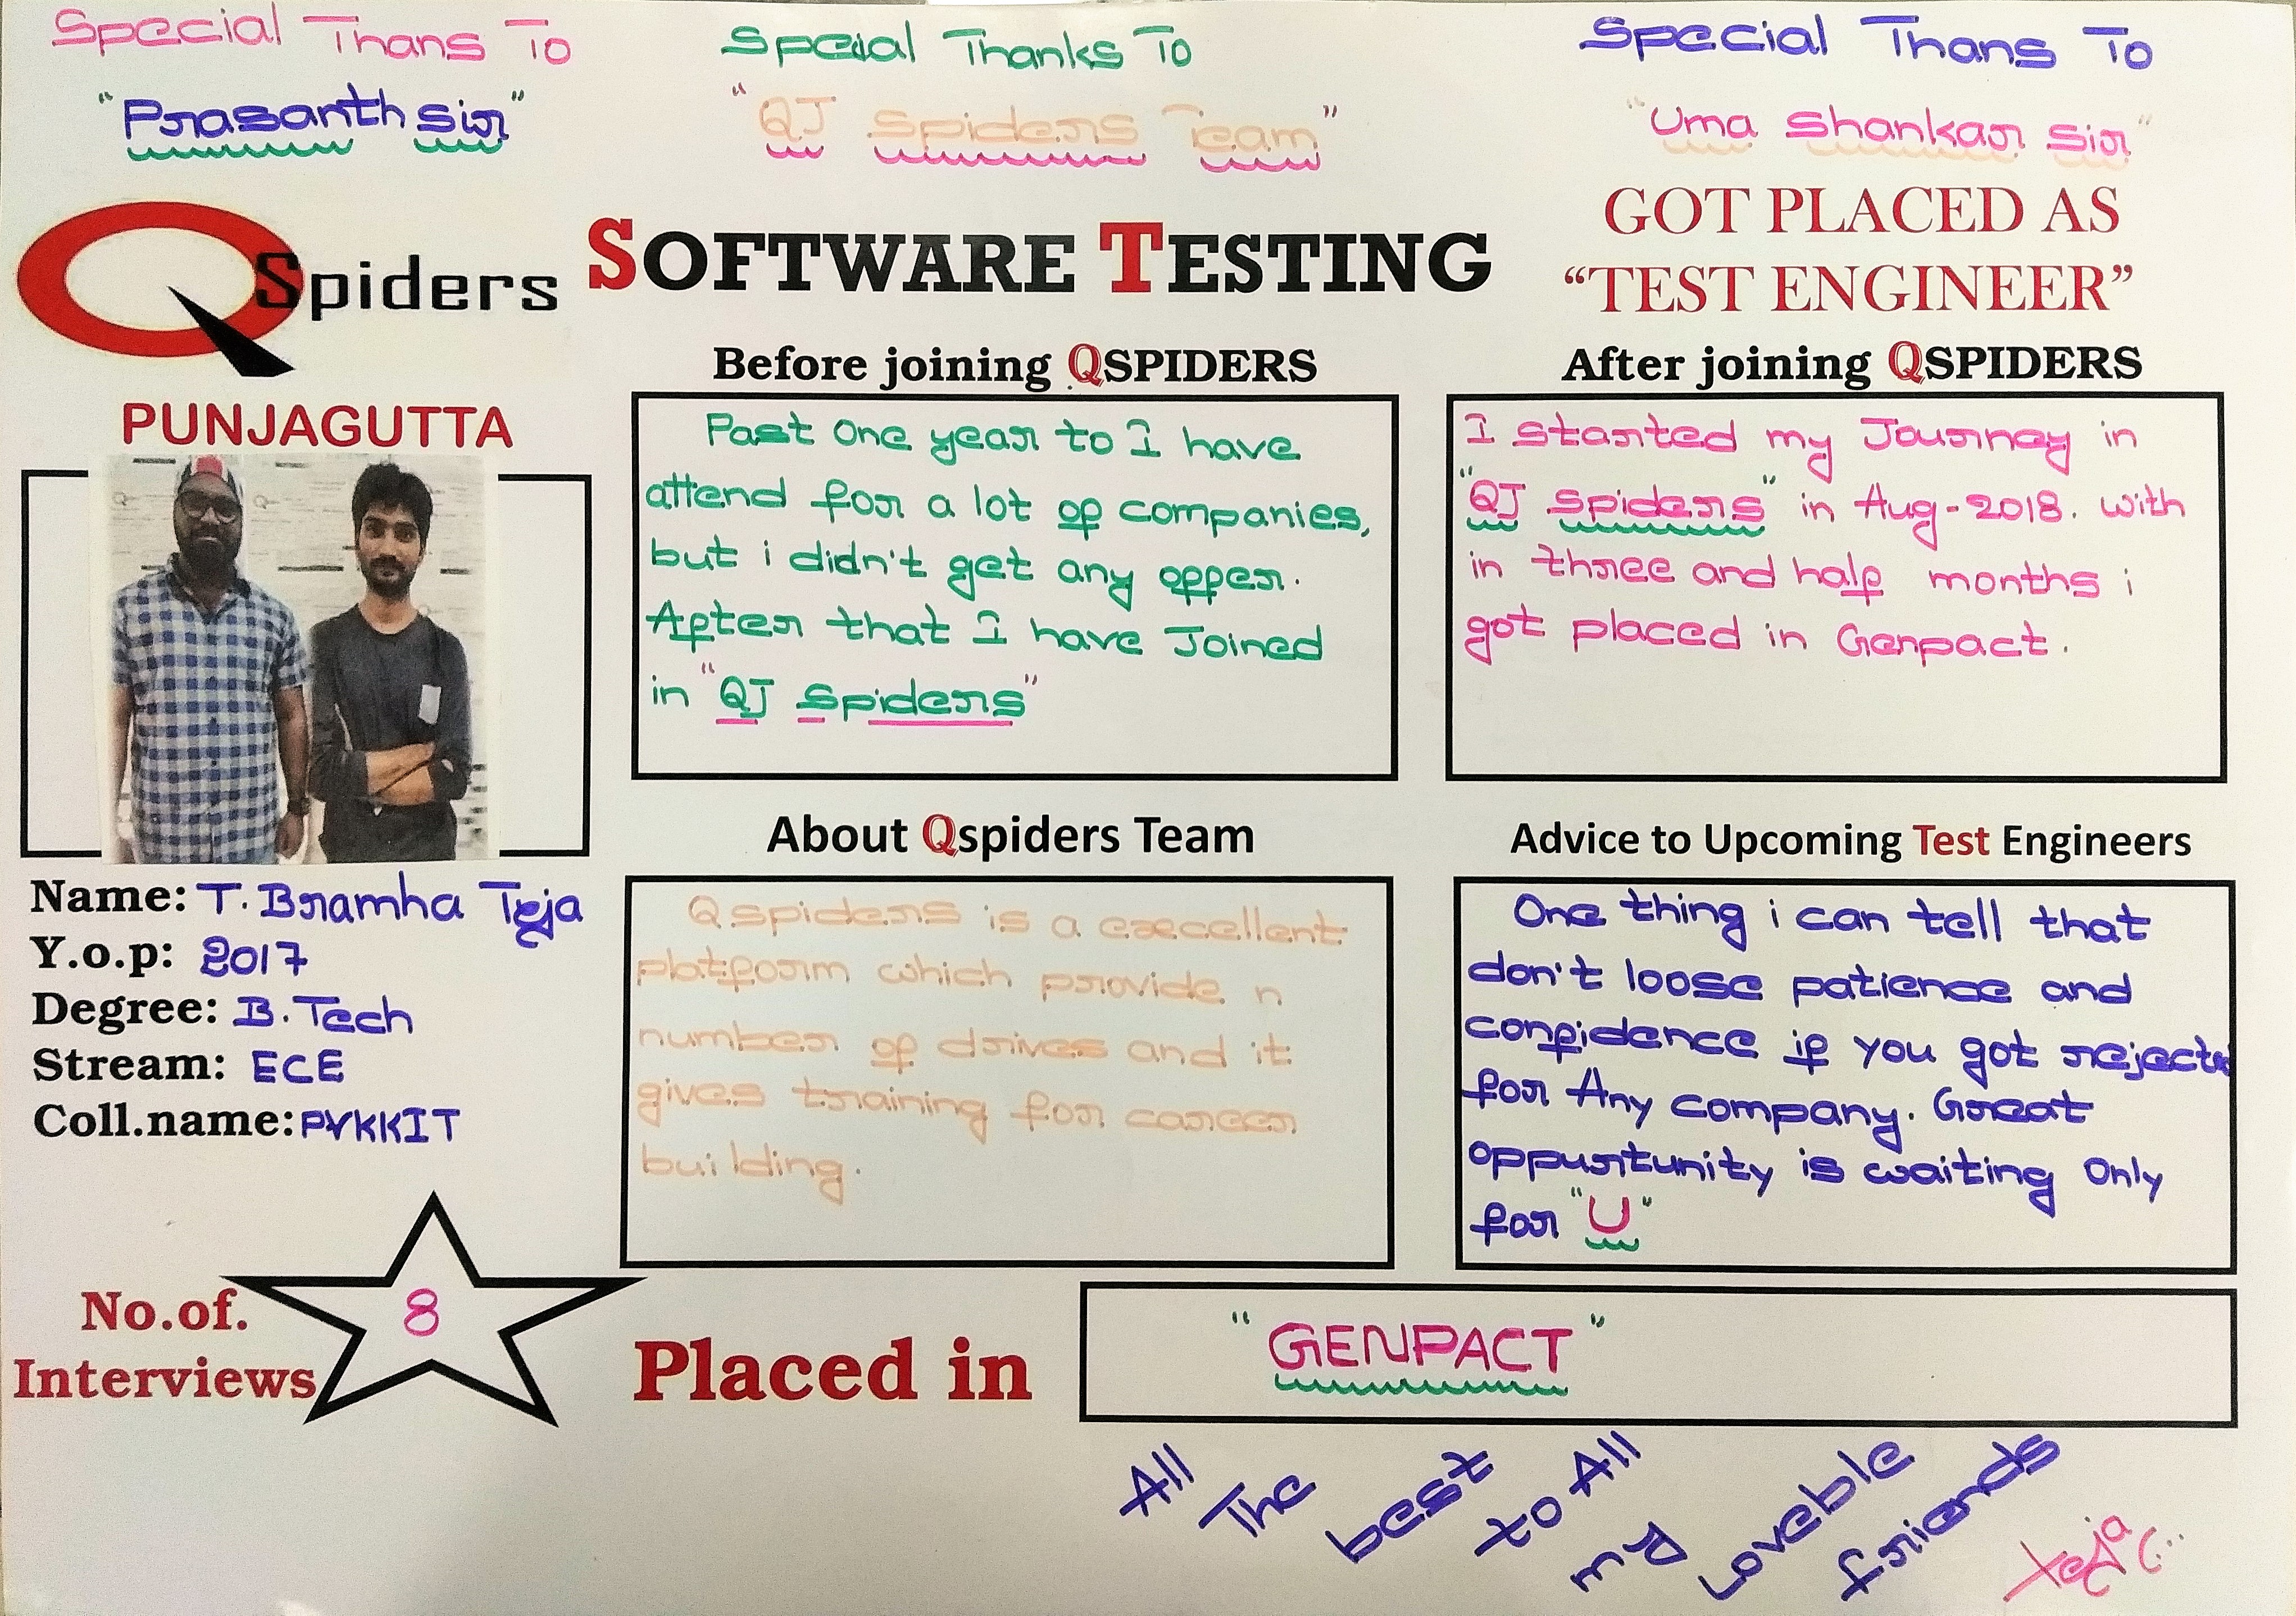 Special Thans To
"Prasanth sir"
Special Thanks To
"QJ Spiders Team"
Special Thans To
"Uma Shankar Sir"
QSpiders
PUNJAGUTTA
SOFTWARE TESTING
GOT PLACED AS
“TEST ENGINEER”
Before joining QSPIDERS
Past One year to I have
attend for a lot of companies,
but i didn't get any offer.
After that I have Joined
in "QJ Spiders"
After joining QSPIDERS
I started my Journey in
"QJ Spiders" in Aug-2018. with
in three and half months i
got placed in Genpact.
Name: T. Bramha Teja
Y.o.p: 2017
Degree: B.Tech
Stream: ECE
Coll.name: PVKKIT
About Qspiders Team
Qspiders is a excellent
platform which provide n
number of drives and it
gives training for career
building.
Advice to Upcoming Test Engineers
One thing i can tell that
don't loose patience and
confidence if you got rejected
for Any company. Great
oppurtunity is waiting Only
for "U"
No.of.
Interviews
8
Placed in
"GENPACT"
All The best to All my loveble friends
Teja